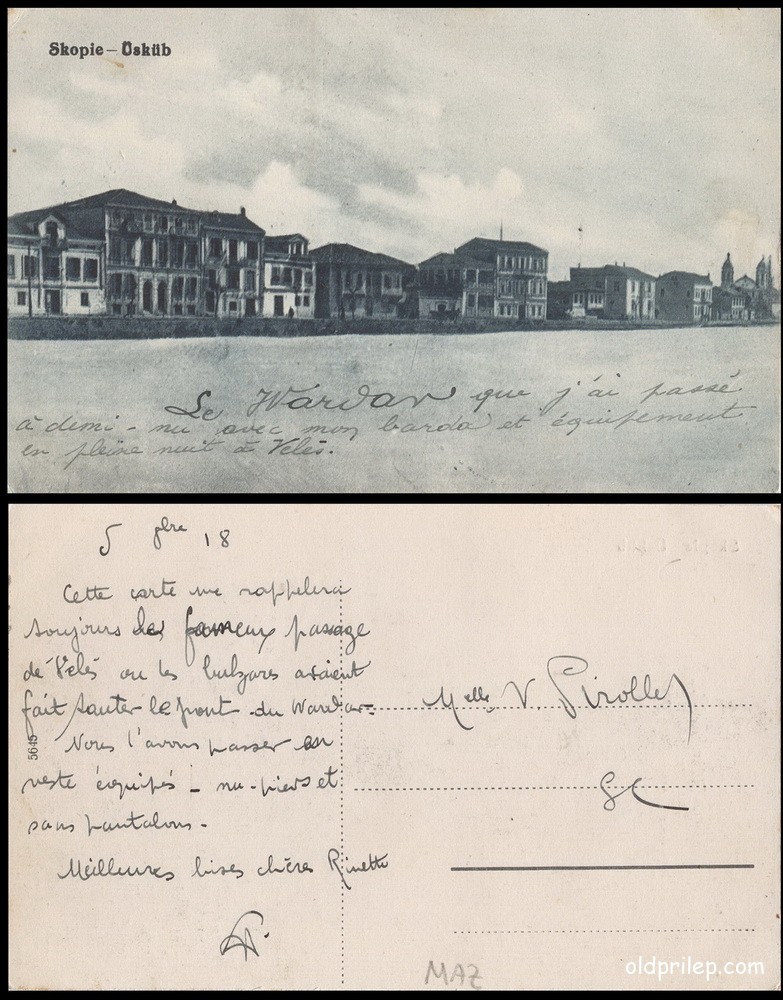 Skopie – Üsküb
Le Wardar que j'ai passé
à demi-nu avec mon barda et équipement
en pleine nuit à Velès.
5 gbre 18
Cette carte me rappelera
toujours le fameux passage
de Velès ou les bulgares avaient
fait sauter le pont du Wardar-
Nous l'avons passer en
veste équipés - nu-pieds et
sans pantalons-
Meilleures bises chères Rinette
5645
Melle V. Pirolley
MAZ
oldprilep.com